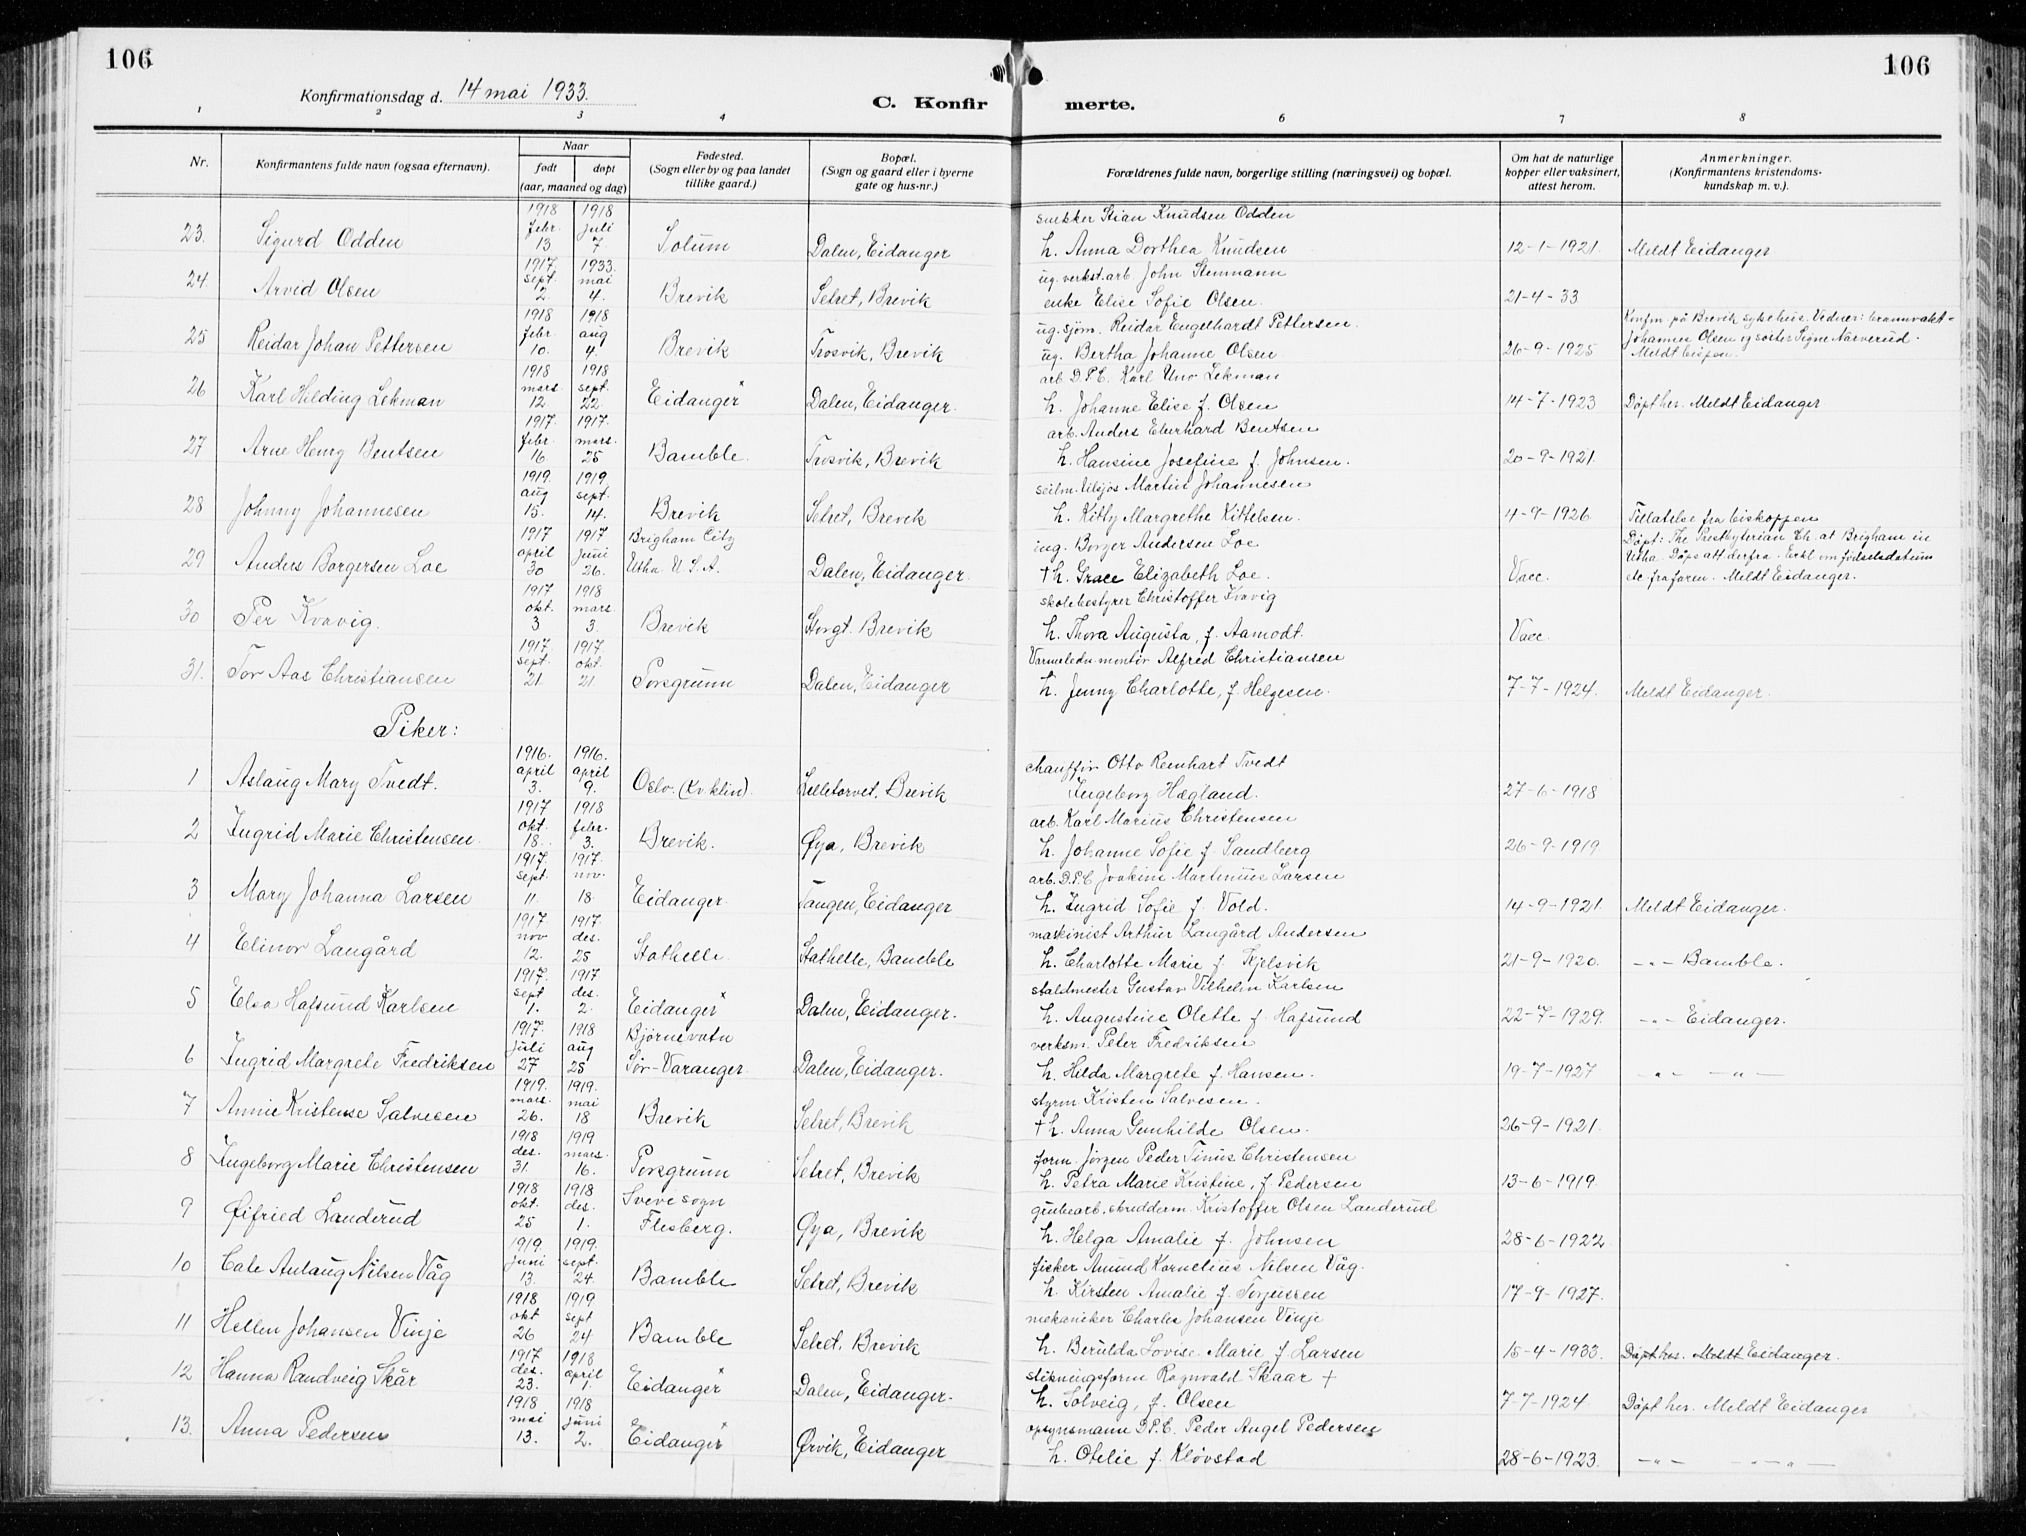 106
106
Konfirmationsdag d. 14 mai 1933.
C. Konfir merte.
1 2 3 4 6 7 8
Nr.
Konfirmantens fulde navn (ogsaa efternavn).
Naar
født døpt
(aar, maaned og dag)
Fødested.
(Sogn eller by og paa landet
tillike gaard.)
Bopæl.
(Sogn og gaard eller i byerne
gate og hus-nr.)
Forældrenes fulde navn, borgerlige stilling (næringsvei) og bopæl.
Om hat de naturlige
kopper eller vaksinert,
attest herom.
Anmerkninger.
(Konfirmantens kristendoms-
kundskap m. v.).
1918 1918 snekker Stian Knudsen Odden
febr. juli
23. Sigurd Odden 13 7 Solum Dalen, Eidanger h. Anna Dorthea Knudsen 12-1-1921 Meldt Eidanger
1917. 1933. ug. verkst.arb John Stenmann
sept. mai
24 Arvid Olsen 2. 4. Brevik Setret, Brevik enke Elise Sofie Olsen. 21-4-33
1918 1918 ug. sjøm. Reidar Engelhardt Pettersen. Konfm på Brevik sykehus. Vidner: brannvakt-
febr. aug
25 Reidar Johan Pettersen 10. 4. Brevik Trosvik, Brevik ug. Bertha Johanne Olsen 26-9-1925 Johannes Olsen og søster Signe Narverud.
Meldt bispen.
1918 1918 arb D.P.C. Karl Uno Lekman
mars. sept.
26 Karl Hilding Lekman 12. 22. Eidanger x Dalen, Eidanger. h. Johanne Elise f. Olsen 14-7-1923 Døpt her. Meldt Eidanger
1917. 1917. arb. Anders Eberhard Bentsen
febr. mars.
27 Arne Henry Bentsen 16. 25 Bamble. Trosvik, Brevik h. Hansine Josefine f. Johnsen. 20-9-1921.
1919. 1919 Martin Johannesen
aug sept.
28 Johnny Johannesen 15. 14. Brevik Setret, Brevik h. Kitty Margrethe Kittelsen. 4-9-1926. Tillatelse fra biskoppen
1917 1917 Brigham City ing. Borger Andersen Loe Døpt: The Presbyterian Ch. at Brigham in
april juni
29 Anders Borgersen Loe 30 26. Utha. U.S.A. Dalen, Eidanger. †h. Grace Elizabeth Loe. Vacc. Utha. Døps att derfra. Erkl om fødselsdatum
etc fra faren. Meldt Eidanger.
1917 1918 skolebestyrer Christoffer Kvavig
okt. mars.
30 Per Kvavig. 3 3. Brevik Storgt. Brevik h. Thora Augusta, f. Aamodt. Vacc.
1917. 1917. Varmeledn. montør Alfred Christiansen
sept. okt.
31. Tor Aas Christiansen 21. 21. Porsgrunn Dalen, Eidanger h. Jenny Charlotte, f. Helgesen. 7-7-1924. Meldt Eidanger.
Piker:
1916. 1916. chauffør Otto Reinhart Tvedt
april april
1 Aslaug Mary Tvedt. 3. 9. Oslo. (Kv.klin). Lilletorvet, Brevik Ingeborg Hægland. 27-6-1918
1917 1918 arb. Karl Marius Christensen
okt. febr.
2 Ingrid Marie Christensen. 18. 3. Brevik. Øya, Brevik h. Johanne Sofie f. Sandberg 26-9-1919
1917. 1917. arb. D.P.C. Joakim Martinius Larsen
sept. nov.
3 Mary Johanna Larsen 11. 18. Eidanger Tangen, Eidanger h. Ingrid Sofie f. Vold. 14-9-1921 Meldt Eidanger.
1917 1917 maskinist Arthur Langård Andersen
nov des.
4 Elinor Langård 12. 25 Stathelle. Stathelle, Bamble h. Charlotte Marie f. Fjelsvik 21-9-1920. -"- Bamble.
1917. 1917 staldmester Gustav Vilhelm Karlsen
sept des.
5 Elsa Hafsund Karlsen 1. 2. Eidanger x Dalen, Eidanger. h. Augustine Olette f. Hafsund 22-7-1929. -"- Eidanger.
1917. 1918 Bjørnevatn verksm. Peter Fredriksen
juli aug
6 Ingrid Margrete Fredriksen 27 25 Sør-Varanger. Dalen, Eidanger. h. Hilda Margrete f. Hansen. 19-7-1927 -"- -"-
1919. 1919. styrm Kristen Salvesen.
mars. mai
7 Annie Kristense Salvesen 26. 18 Brevik Setret, Brevik †h. Anna Gunhilde Olsen. 26-9-1921.
1918 1919 form. Jørgen Peder Tinus Christensen
des. mars.
8 Ingeborg Marie Christensen 31. 16. Porsgrunn Setret, Brevik h. Petra Marie Kristine, f. Pedersen 13-6-1919.
1918 1918 Svene sogn grubearb. skredderm. Kristoffer Olsen Landerud
okt. des.
9 Øifried Landerud 25 1. Flesberg. Øya, Brevik h. Helga Amalie f. Johnsen 28-6-1922
1919. 1919. fisker Amund Kornelius Nilsen Våg.
juni sept.
10 Cate Aulaug Nilsen Våg 13. 24. Bamble Setret, Brevik h. Kirsten Amalie f. Torjussen 17-9-1927.
1918 1919 mekaniker Charles Johansen Vinje
okt sept
11 Hellen Johansen Vinje 26 24 Bamble Setret, Brevik h. Berulda Lovise Marie f. Larsen 15-4-1933. Døpt her. Meldt Eidanger.
1917 1918 stikningsform Ragnvald Skaar †
des. april
12 Hanna Randveig Skår 23. 1. Eidanger x Dalen, Eidanger. h. Solveig, f. Olsen 7-7-1924 Døpt her. Meldt Eidanger
1918 1918 opsynsmann D.P.C. Peder Angel Pedersen
mai juni
13. Anna Pedersen 13. 2. Eidanger x Ørvik, Eidanger h. Otelie f. Kløvstad 28-6-1923. -"- -"-"-